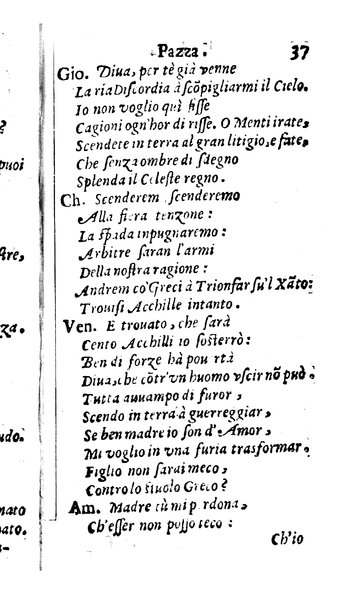 Pazza. 37
Gio. Diua, per tè già venne
La ria Discordia à scõpigliarmi il Cielo.
Io non voglio quì fisse
Cagioni ogn'hor di risse. O Menti irate,
Scendete in terra al gran litigio, e fate,
Che senza ombre di sdegno
Splenda il Celeste regno.
Ch. Scenderem, scenderemo
Alla fiera tenzone:
La spada impugnaremo:
Arbitre saran l'armi
Della nostra ragione:
Andrem co'Greci à Trionfar su'l Xãto:
Trouisi Acchille intanto.
Ven. E trouato, che sarà
Cento Acchilli io sosterrò:
Ben di forze hà pouertà
Diua, che cõtr'vn huomo vscir nõ può.
Tutta auuampo di furor,
Scendo in terra à guerreggiar,
Se ben madre io son d'Amor,
Mi voglio in vna furia trasformar.
Figlio non sarai meco,
Contro lo stuolo Greco?
Am. Madre tù mi perdona,
Ch'esser non posso teco:
Ch'io